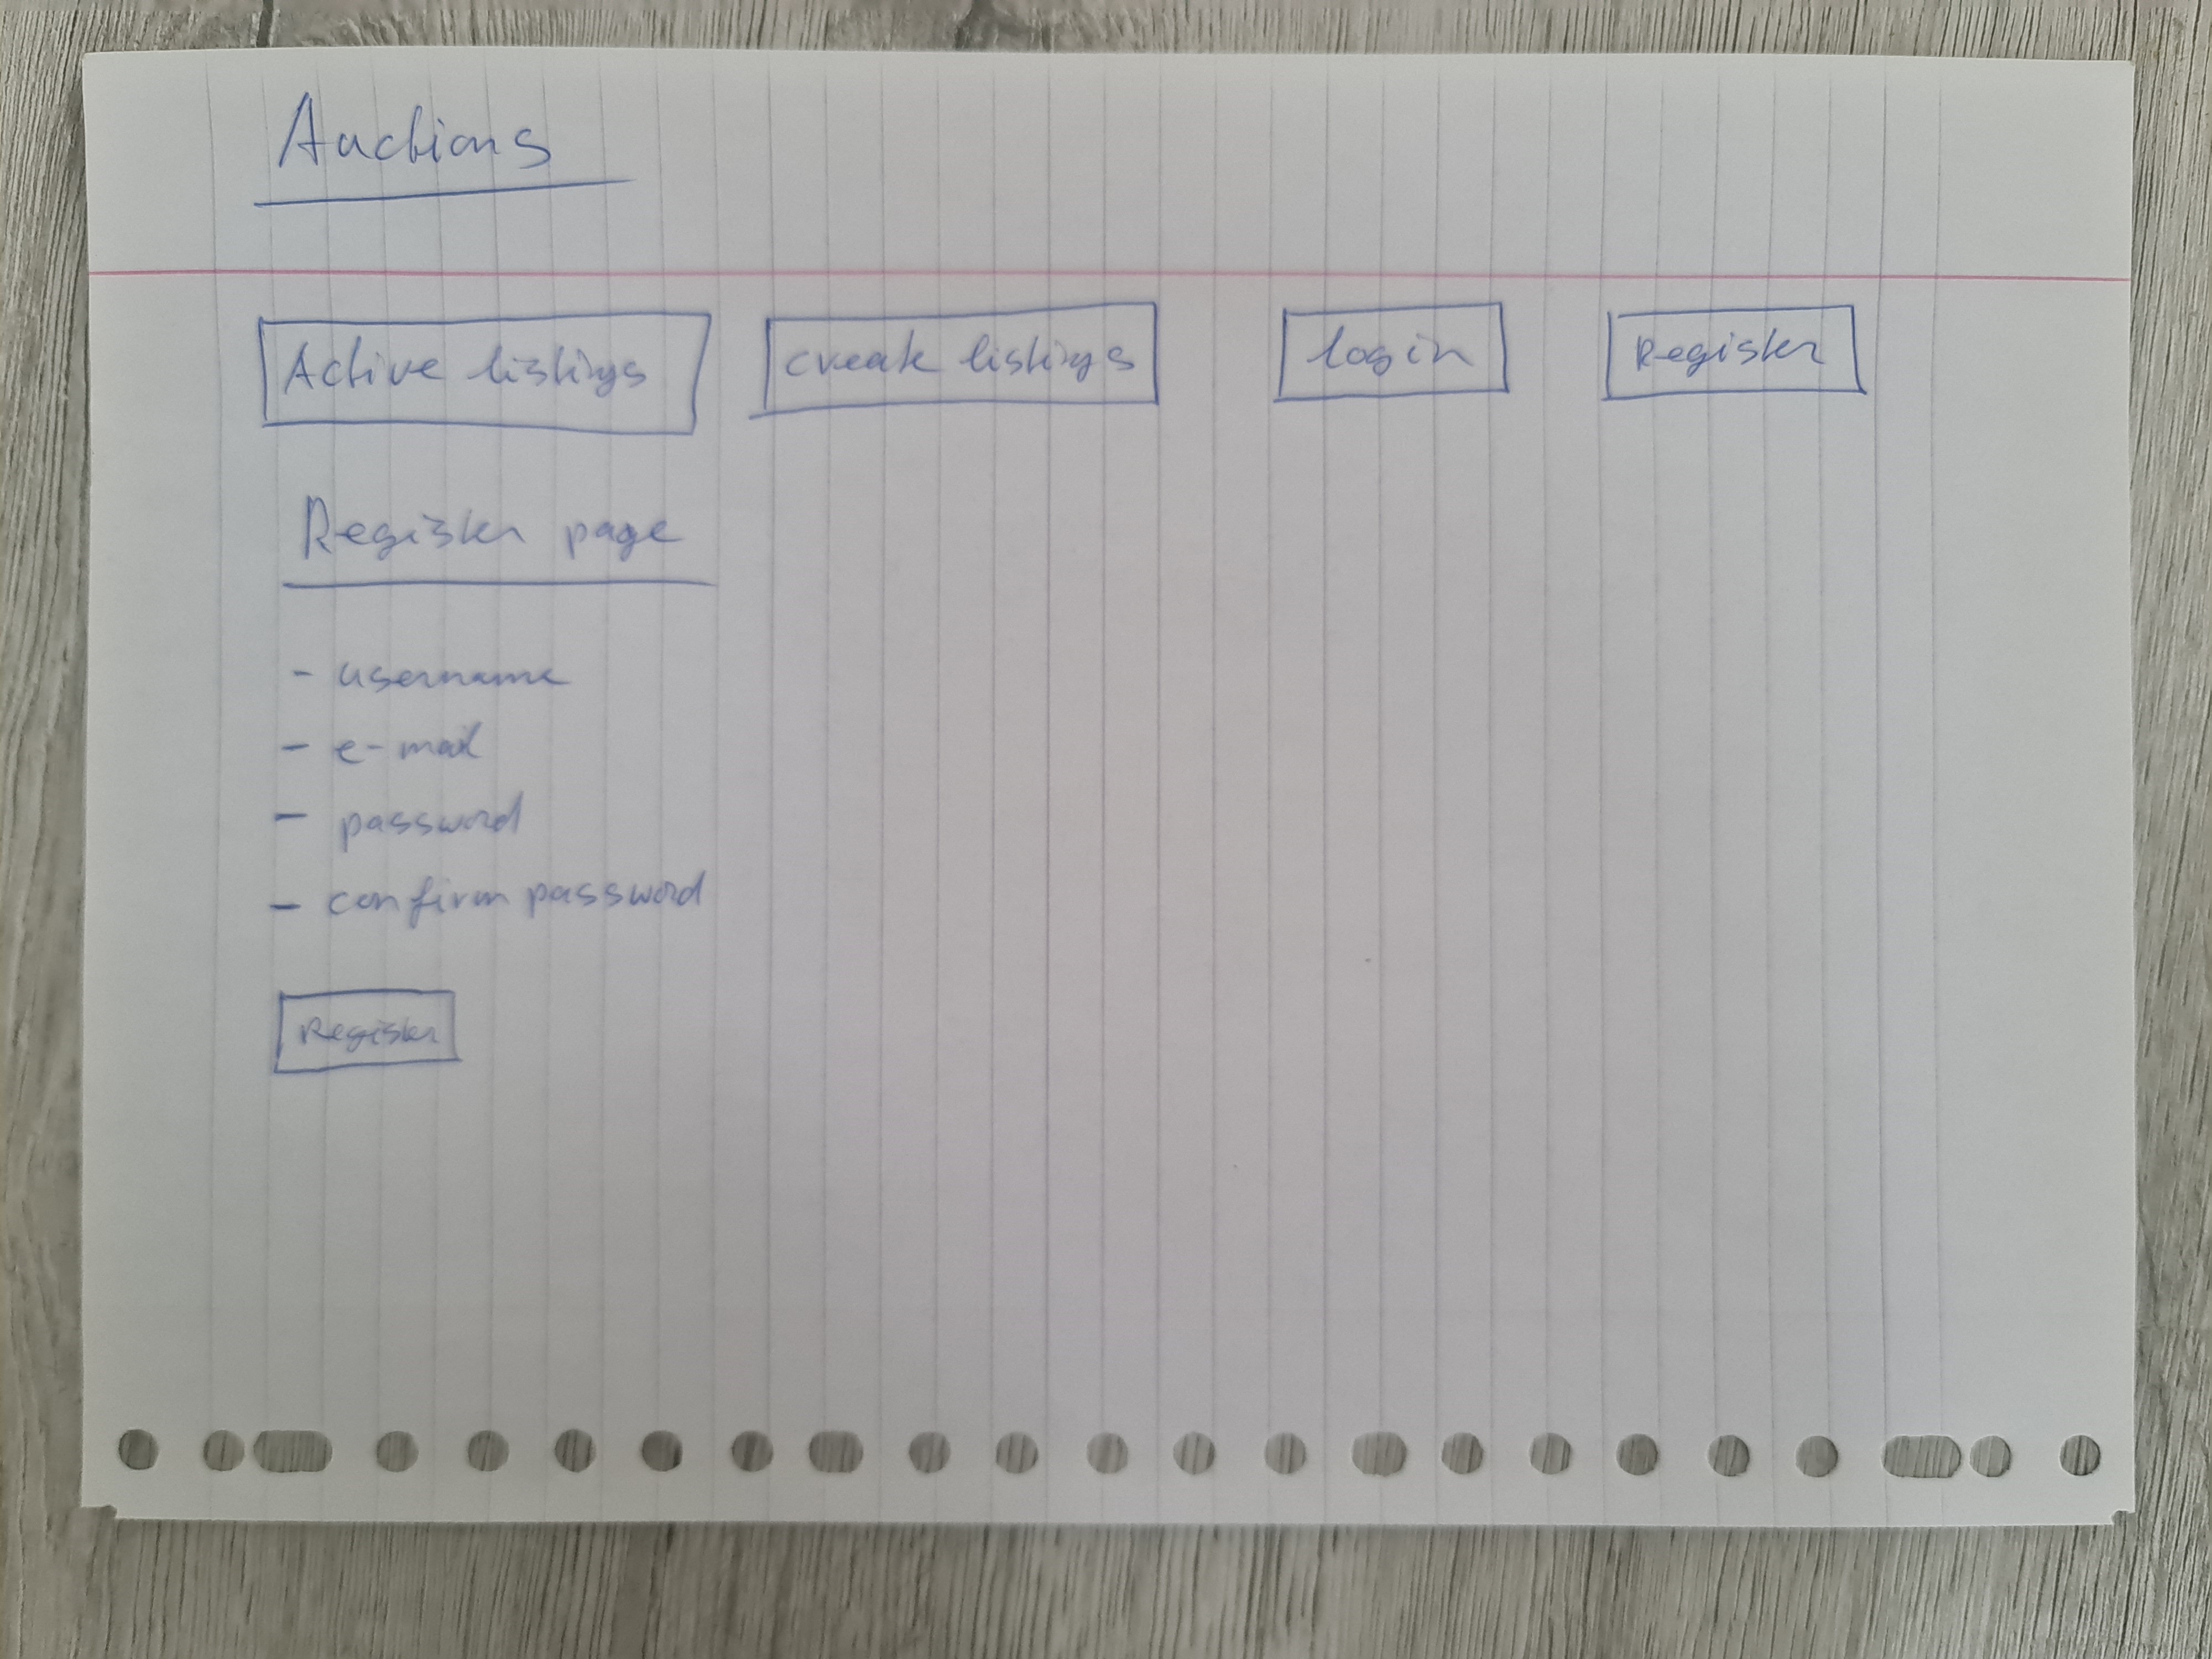 Auctions
Active listings create listings login Register
Register page
- username
- e-mail
- password
- confirm password
Register